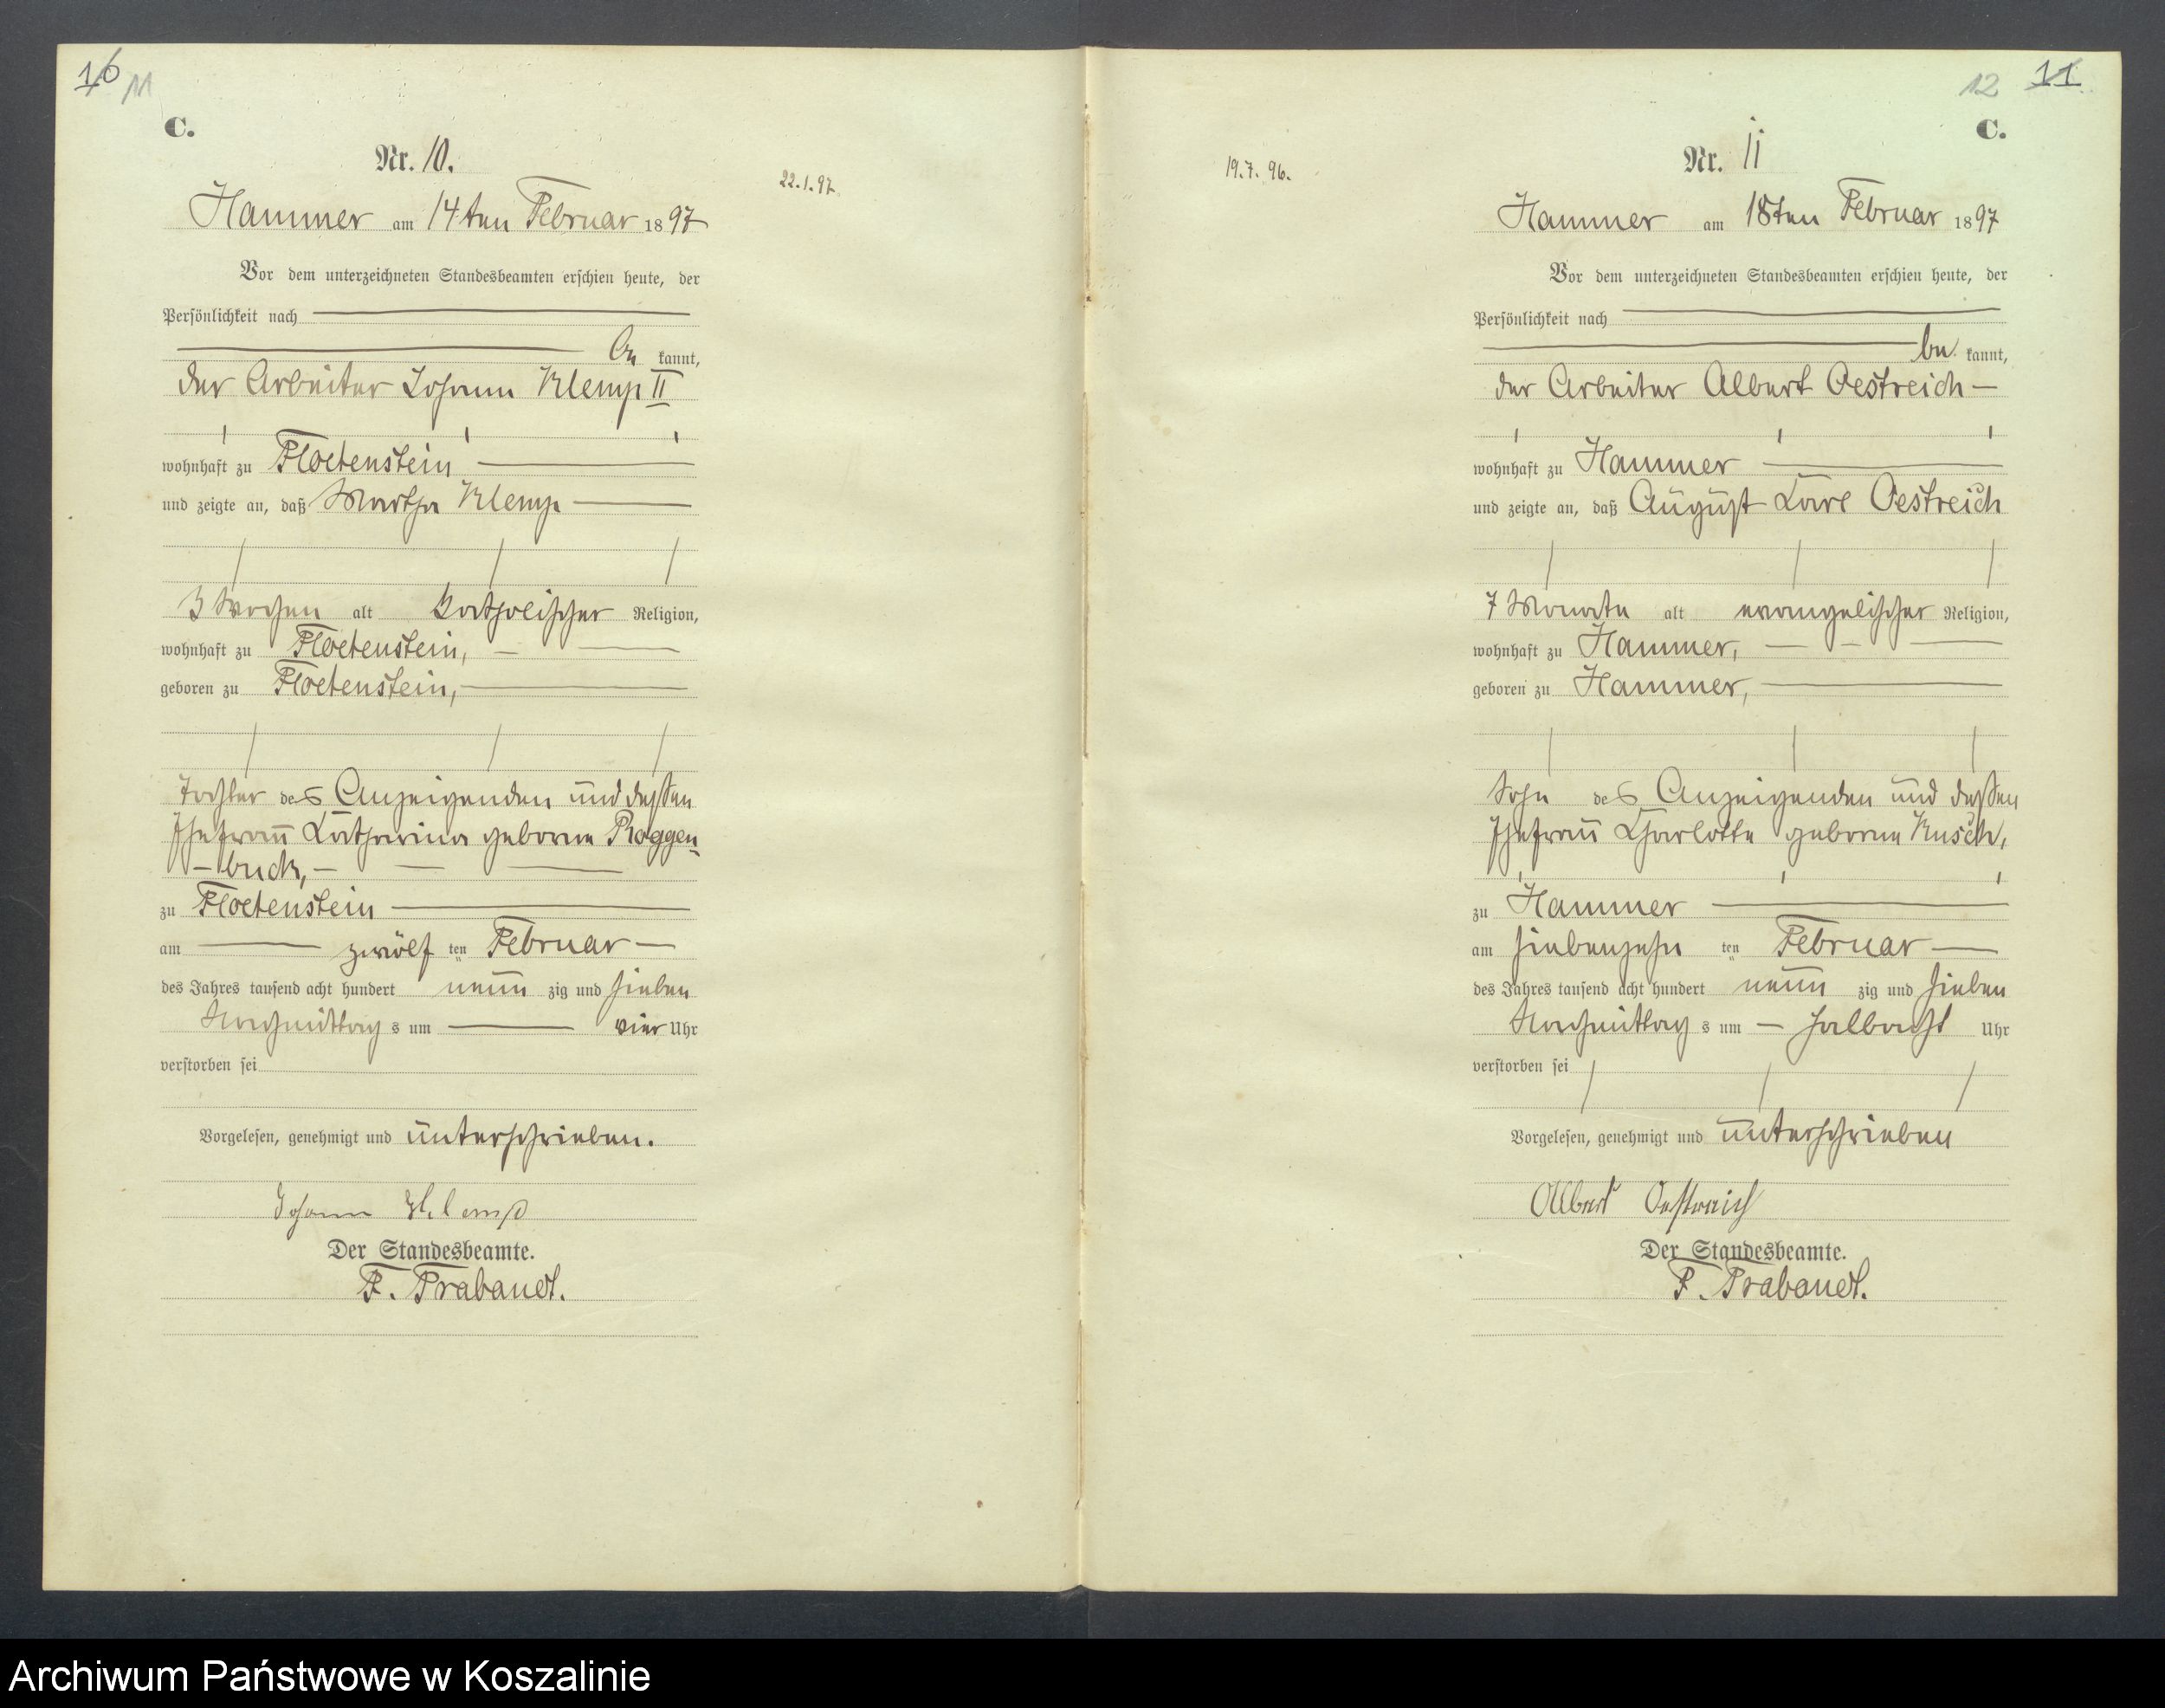 10 11
C.
Nr. 10.
22.1.97.
Hammer am 14ten Februar 1897
Vor dem unterzeichneten Standesbeamten erschien heute, der
Persönlichkeit nach
be kannt,
der Arbeiter Johann Klemp II
wohnhaft zu Floetenstein
und zeigte an, daß Martha Klemp
3 Wochen alt katholischer Religion,
wohnhaft zu Floetenstein,
geboren zu Floetenstein,
Tochter des Anzeigenden und dessen
Ehefrau Katharina geborne Roggen
-buck,
zu Floetenstein
am zwölf ten Februar
des Jahres tausend acht hundert neun zig und sieben
Nachmittag s um vier Uhr
verstorben sei
Vorgelesen, genehmigt und unterschrieben.
Johann Klemp
Der Standesbeamte.
F. Trabandt.
12 11
C.
Nr. 11
19.7.96.
Hammer am 18ten Februar 1897
Vor dem unterzeichneten Standesbeamten erschien heute, der
Persönlichkeit nach
be kannt,
der Arbeiter Albert Oestreich
wohnhaft zu Hammer
und zeigte an, daß August Karl Oestreich
7 Monate alt evangelischer Religion,
wohnhaft zu Hammer,
geboren zu Hammer,
Sohn des Anzeigenden und dessen
Ehefrau Charlotte geborne Rusch,
zu Hammer
am siebenzehn ten Februar
des Jahres tausend acht hundert neun zig und sieben
Nachmittag s um halbacht Uhr
verstorben sei
Vorgelesen, genehmigt und unterschrieben
Albert Oestreich
Der Standesbeamte.
F. Trabandt.
Archiwum Państwowe w Koszalinie